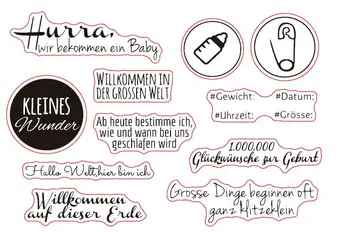 Hurra,
wir bekommen ein Baby
WILLKOMMEN IN
DER GROSSEN WELT
KLEINES
Wunder
Ab heute bestimme ich,
wie und wann bei uns
geschlafen wird
#Gewicht: #Datum:
#Uhrzeit: #Grösse:
1.000.000
Glückwünsche zur Geburt
Hallo Welt,hier bin ich
Willkommen
auf dieser Erde
Grosse Dinge beginnen oft
ganz klitzeklein